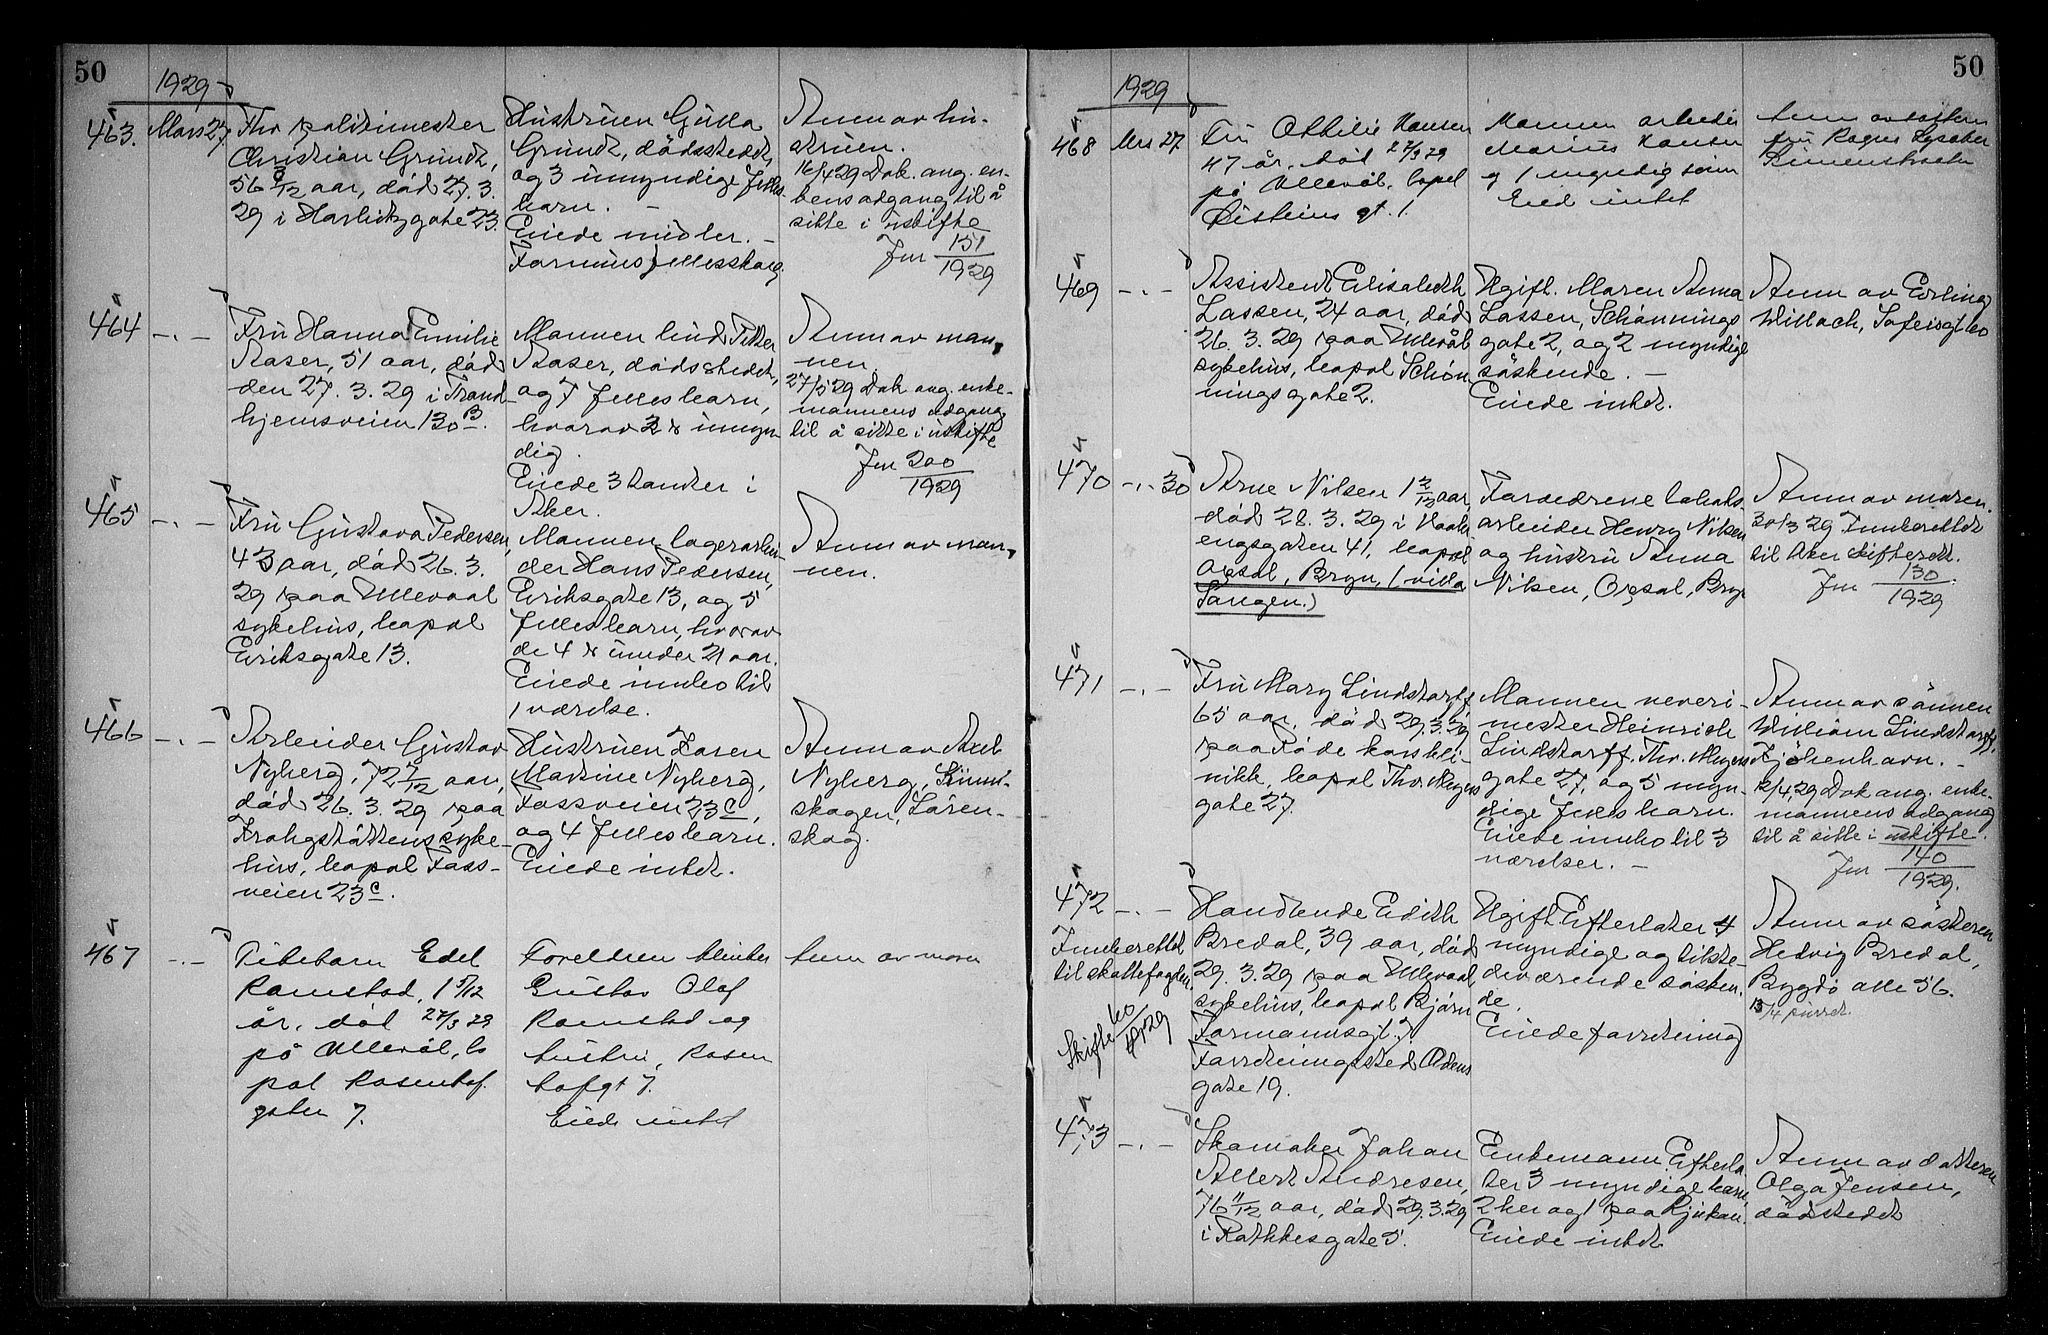 50
1929
463. Mars 27.
Fhv politimester
Christian Grundt,
56 9/12 aar, död 27. 3.
29 i Harbitzgate 23.
Hustruen Gulla
Grundt, dödsstedet,
og 3 umyndige felles-
barn. —
Eiede midler. —
Formues fellesskap.
Anm av hu-
struen.
16/4 29 Dok. ang. en-
kens adgang til å
sitte i uskifte
Jnr 151/1929
464 -.-
Fru Hanna Emilie
Aaser, 51 aar, död
den 27. 3. 29 i Trond-
hjemsveien 130 B.
Mannen
Aaser, dödsstedet,
og 7 felles barn,
hvorav umyn-
dig.
Eiede 3 tomter i
Aker.
Anm av man-
nen.
27/5 29 Dok. ang. enke-
mannens adgang
til å sitte i uskifte
Jnr 200/1929
465 -.-
Fru Gustava Pedersen,
43 aar, död 26. 3.
29 paa Ullevaal
sykehus, bopal
Eriksgate 13.
Mannen lagerarbei-
der Hans Pedersen,
Eriksgate 13, og 5
felles barn, hvorav
de 4 er under 21 aar.
Eiede innbo til
1 værelse.
Anm av man-
nen.
466 -.-
Arbeider Gustav
Nyberg, 72 7/12 aar,
död 26. 3. 29 paa
Krohgstöttens syke-
hus, bopal Foss-
veien 23 c.
Hustruen Karen
Martine Nyberg,
Fossveien 23 c,
og 4 felles barn.
Eiede intet.
Anm av Axel
Nyberg,
skogen, Lören-
skog.
467 -.-
Pikebarn Edel
Ramstad, 1 5/12
år, död 27/3 29
på Ullevål, bo
pal Rosenhof
gaten 7.
Foreldrene
Gustav Olaf
Ramstad og
hustru, Rosen
hofgt 7.
Eiede intet
Anm av moren
50
1929
468 Mrs 27.
Fru Othilie Hansen
47 år, död 27/3 29
på Ullevål, bopal
Öisteins gt. 1.
Mannen arbeider
Marius Hansen
og 1 myndig sönn
Eied intet
Anm av
fru Ragna
469 -.-
Assistent Elisabeth
Lassen, 24 aar, död
26. 3. 29 paa Ullevål
sykehus, bopal Schön
nings gate 2.
Ugift. Maren Anna
Lassen, Schönnings
gate 2, og 2 myndige
söskende. —
Eiede intet.
Anm av Erling
Willoch, Sofiesgt 60
470 -.- 30
Arne Nilsen 1 2/12 aar,
död 28. 3. 29 i Vaale
engsgaten 41, bopal
Opsal, Bryn, (villa
Tangen.)
Foreldrene lokals-
arbeider Henry Nilsen
og hustru Anna
Nilsen, Opsal, Bryn
Anm av moren.
30/3 29 Innberettet
til Aker skifterett.
Jnr 130/1929
471 -.-
Fru Mary Lindstorff
65 aar, död 29. 3. 29
paa Röde kors kli-
nikk, bopal Thv. Meyers
gate 27.
Mannen veveri-
mester Heinrich
Lindstorff, Thv. Meyers
gate 27, og 5 myn-
dige felles barn.
Eiede innbo til 3
værelser. —
Anm av sönnen
William Lindstorff,
Kjöbenhavn. —
12/4 29 Dok ang. enke-
mannens adgang
til å sitte i uskifte.
Jnr 140/1929.
472 -.-
Innberettet
til skattefogden
Skifte 60/1929
Handlende Edith
Bredal, 39 aar, död
29. 3. 29 paa Ullevaal
sykehus, bopal Björn
Farmannsgt. 7
Forretningssted Odens
gate 19.
Ugift Efterlater 4
myndige og tilste-
deværende sösken-
de.
Eiede forretning
Anm av sösteren
Hedvig Bredal,
Bygdö alle 56.
13/4 purret.
473 -.-
Skomaker Johan
Albert Andresen,
76 11/12 aar, död 29. 3. 29
i Rathkesgate 5.
Enkemann. Efterla-
ter 3 myndige barn,
2 her og 1 paa Rjukan.
Eiede intet
Anm av datteren
Olga Jensen,
dödstedet